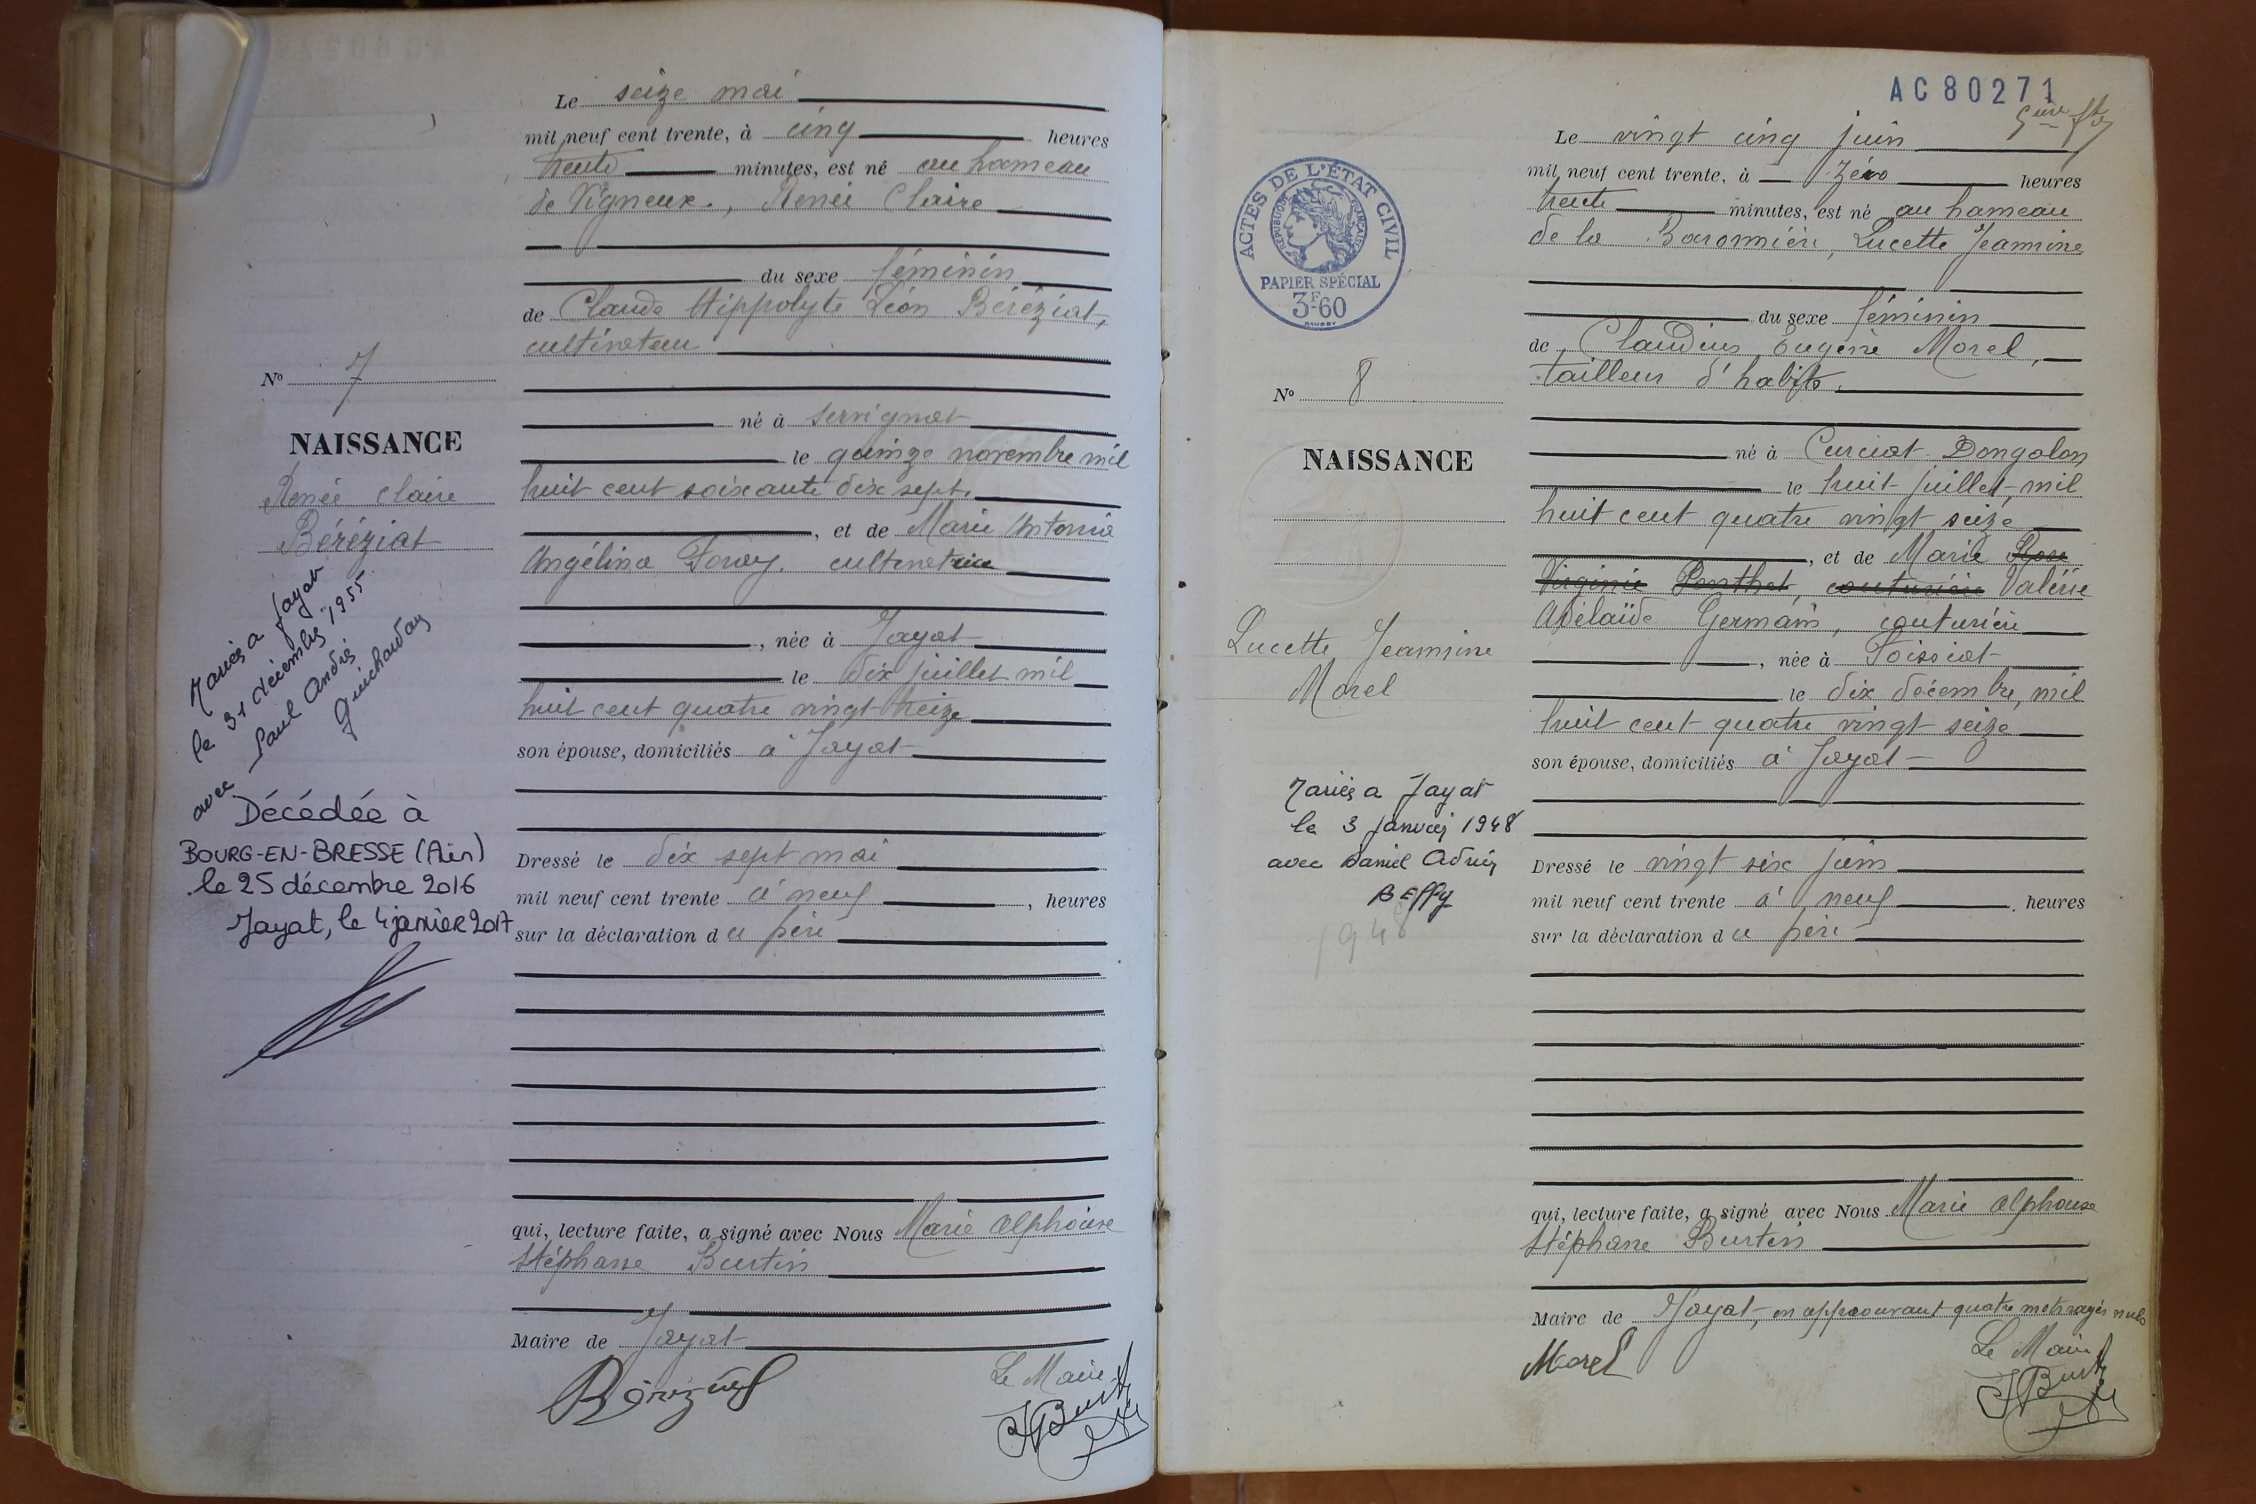 Le seize mai
mil neuf cent trente, à cinq heures
trente minutes, est né au hameau
de Vigneux, Renée Claire
du sexe féminin
de Claude Hippolyte Léon Béréziat,
cultivateur
né à Servignat
le quinze novembre mil
huit cent soixante dix sept,
, et de Marie Antonia
Angélina cultivatrice
, née à Jayat
le dix juillet mil
huit cent quatre vingt treize
son épouse, domiciliés à Jayat
Dressé le dix sept mai
mil neuf cent trente à neuf , heures
sur la déclaration du père
qui, lecture faite, a signé avec Nous Marie Alphonse
Stéphane Burtin
Maire de Jayat
Le Maire
No 7
NAISSANCE
Renée Claire
Béréziat
Mariés a Jayat
le 31 décembre 1955
avec Paul André
Guichardan
Décédée à
BOURG-EN-BRESSE (Ain)
le 25 décembre 2016
Jayat, le 4 janvier 2017
AC80271
Le vingt cinq juin
mil neuf cent trente, à zéro heures
trente minutes, est né au hameau
de la Baronnière, Lucette Jeannine
du sexe féminin
de Claudius Eugène Morel,
tailleur d'habits,
né à Curciat Dongalon
le huit juillet, mil
huit cent quatre vingt seize
, et de Marie Rose
Virginie Ponthet, couturière Valérie
Adélaïde Germain, couturière
, née à Foissiat
le dix décembre, mil
huit cent quatre vingt seize
son épouse, domiciliés à Jayat
Dressé le vingt six juin
mil neuf cent trente à neuf heures
sur la déclaration du père
qui, lecture faite, a signé avec Nous Marie Alphonse
Stéphane Burtin
Maire de Jayat, en approuvant quatre mots rayés nuls
Morel
Le Maire
ACTES DE L'ÉTAT CIVIL
RÉPUBLIQUE FRANÇAISE
PAPIER SPÉCIAL
3F60
No 8
NAISSANCE
Lucette Jeannine
Morel
Mariés a Jayat
le 3 janvier 1948
avec Daniel Adrien
BEffy
1948